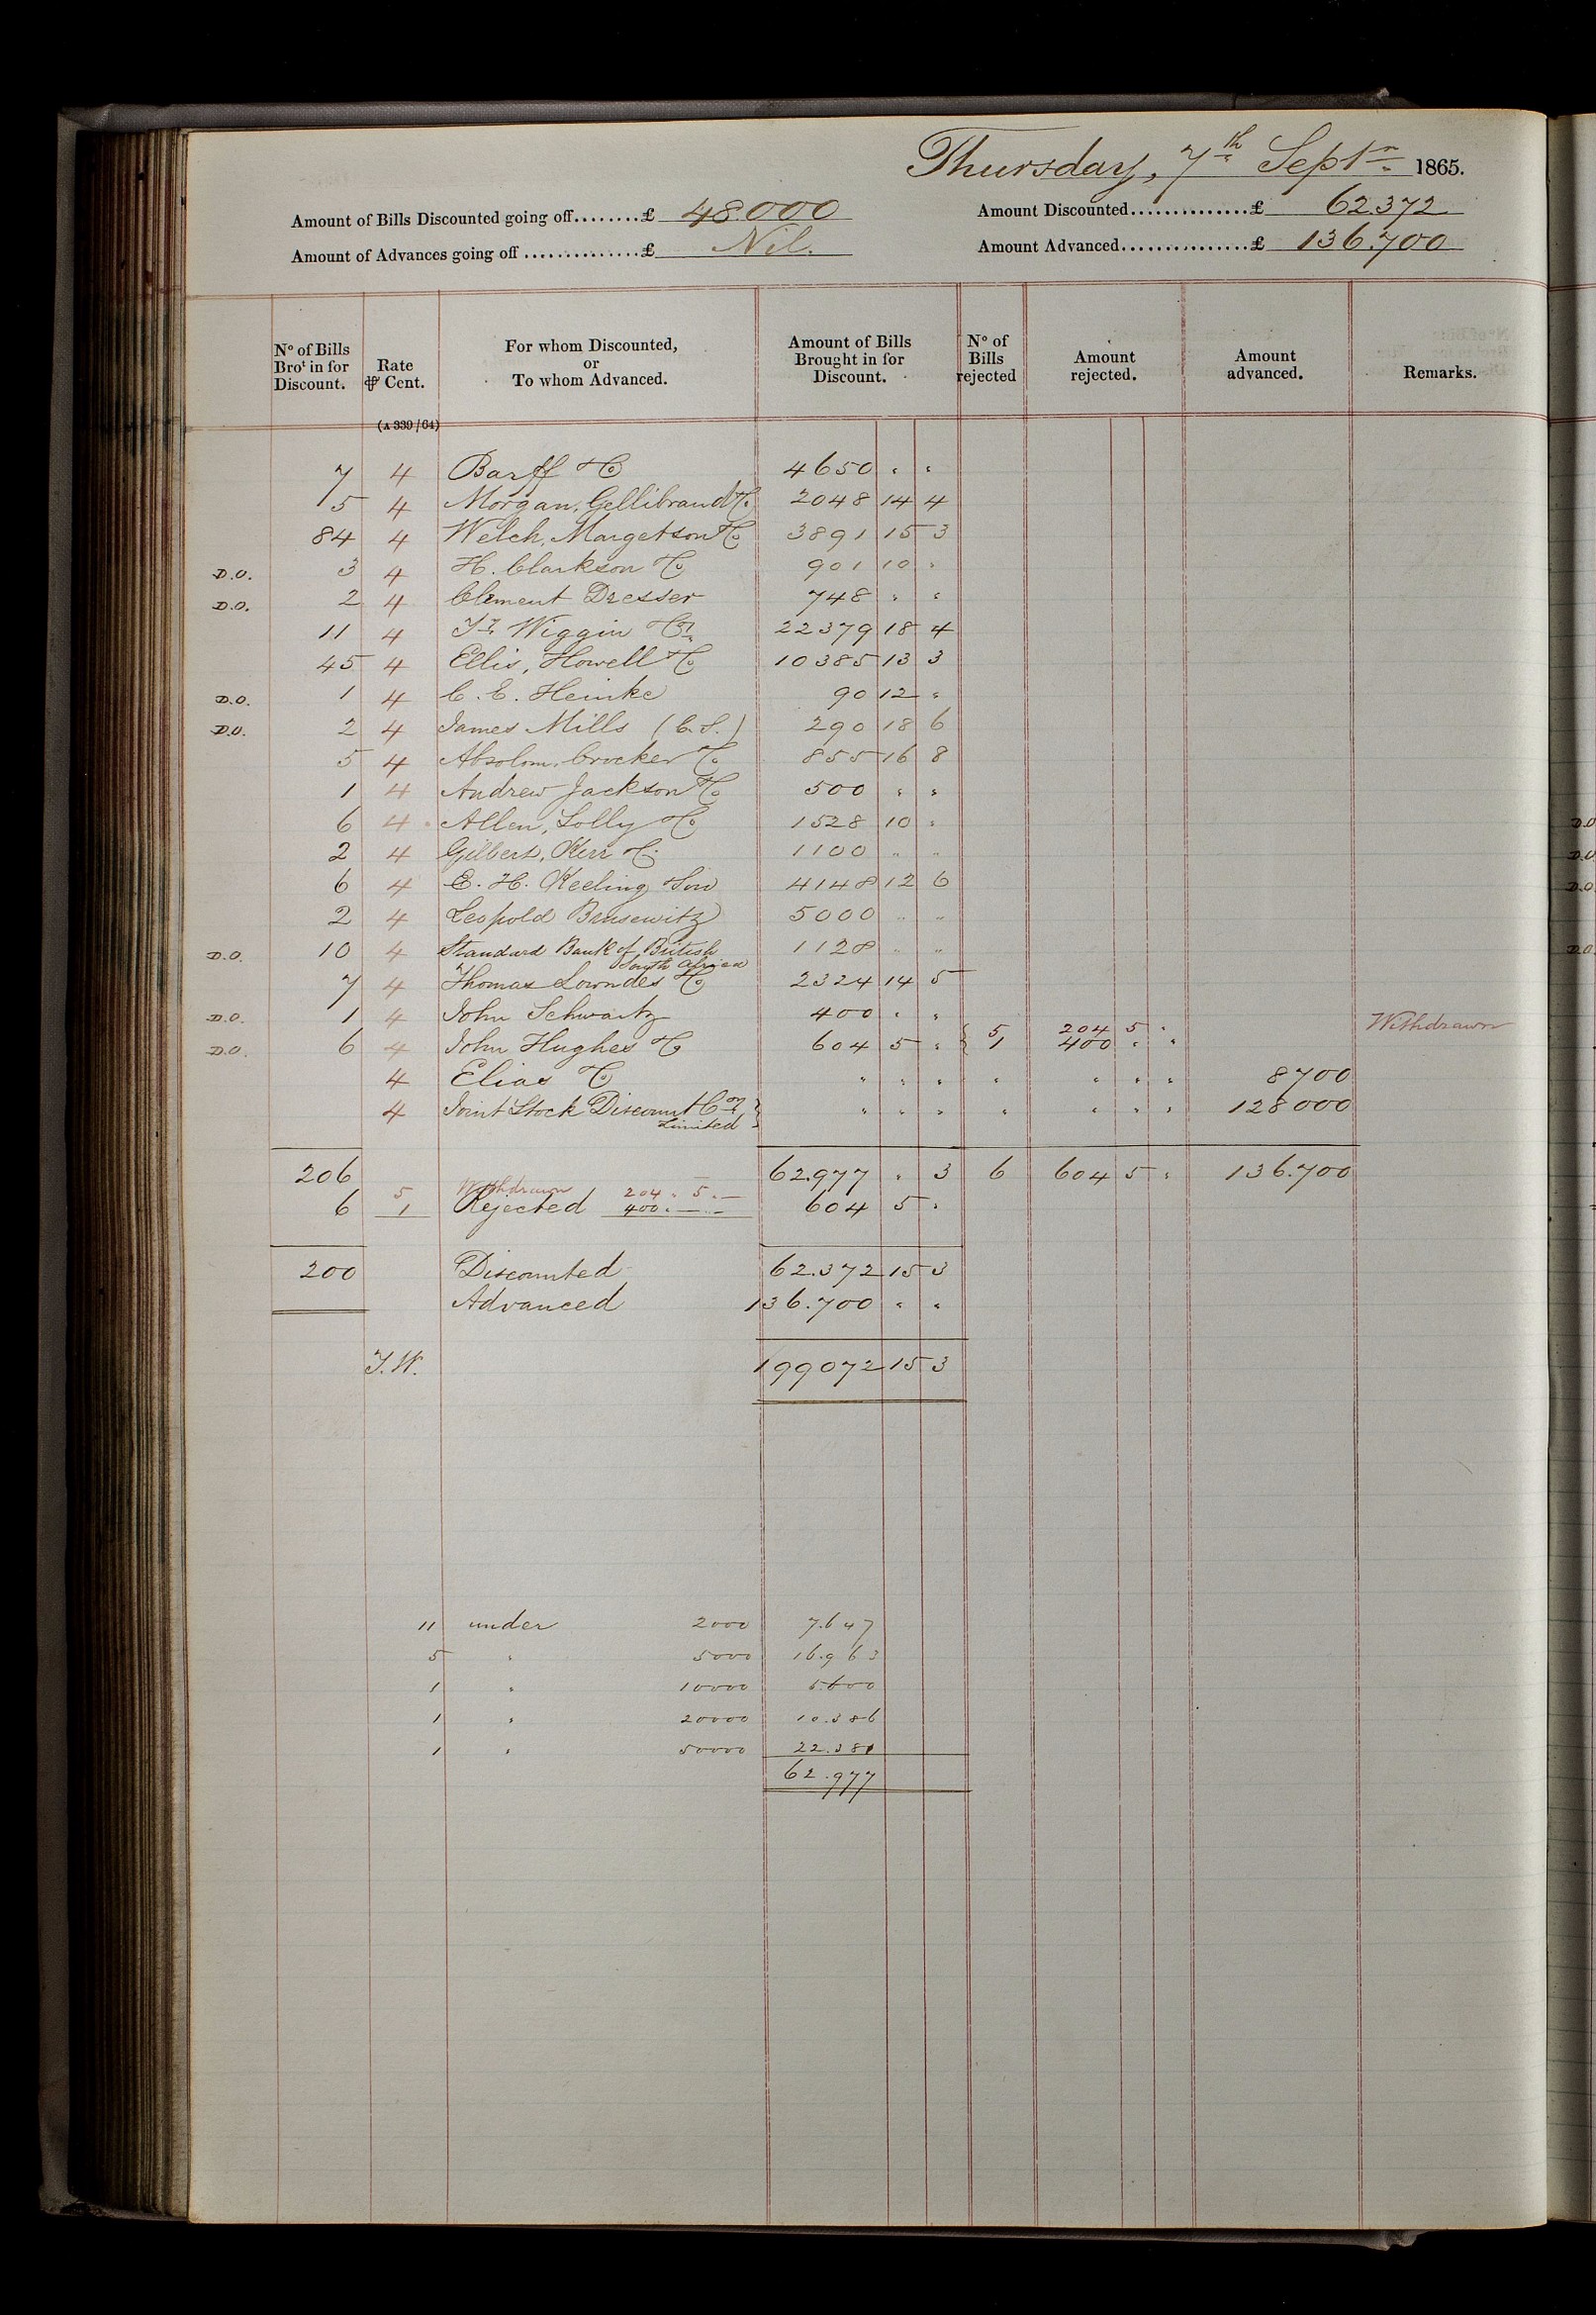 Thursday, 7th Septr 1865.
Amount of Bills Discounted going off........£ 48.000 Amount Discounted..............£ 62.372
Amount of Advances going off ..............£ Nil. Amount Advanced...............£ 136.700
No of Bills Brot in for Discount. Rate ⅌ Cent. For whom Discounted, or To whom Advanced. Amount of Bills Brought in for Discount. No of Bills rejected Amount rejected. Amount advanced. Remarks.
(A 339/64)
7 4 Barff & Co 4650 " "
5 4 Morgan, Gellibrand & Co 2048 14 4
84 4 Welch, Margetson & Co 3891 15 3
D.O. 3 4 H. Clarkson & Co 901 10 "
D.O. 2 4 Clement Dresser 748 " "
11 4 Wiggin 22379 18 4
45 4 Ellis, Howell & Co 10385 13 3
D.O. 1 4 C. E. Heinke 90 12 "
D.O. 2 4 James Mills (C.S.) 290 18 6
5 4 Absolom, Crocker & Co 855 16 8
1 4 Andrew Jackson & Co 500 " "
6 4 Allen, Lolly & Co 1528 10 "
2 4 Gilbert, Kerr & Co 1100 " "
6 4 E. H. Keeling & Son 4148 12 6
2 4 Leopold Bensewitz 5000 " "
D.O. 10 4 Standard Bank of British South Africa 1128 " "
7 4 Thomas Lowndes & Co 2324 14 5
D.O. 1 4 John Schwartz 400 " "
5 204 5 " Withdrawn
D.O. 6 4 John Hughes & Co 604 5 " 1 400 " "
4 Elias & Co " " " " " " " 8700
4 Joint Stock Discount Coy Limited " " " " " " " 128000
206 62.977 " 3 6 604 5 " 136.700
5 Withdrawn 204 " 5 " —
6 1 Rejected 400 " — " — 604 5 "
200 Discounted 62.372 15 3
Advanced 136.700 " "
J.W. 199072 15 3
11 under 2000 7.647
5 " 5000 16.963
1 " 10000 5.600
1 " 20000 10.386
1 " 50000 22.381
62.977
D.O
D.O
D.O
D.O